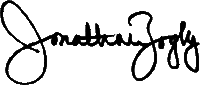 Jonathan Zogby